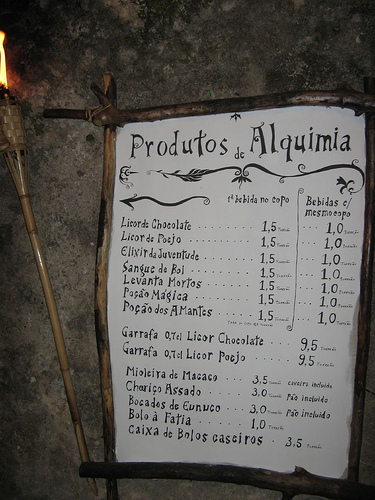 Produtos de Alquimia
1ª bebida no copo Bebidas c/ mesmo copo
Licor de Chocolate 1,5 1,0
Licor de Poejo 1,5 1,0
Elixir da Juventude 1,5 1,0
Sangue de Boi 1,5 1,0
Levanta Mortos 1,5 1,0
Poção Mágica 1,5 1,0
Poção dos Amantes 1,5 1,0
Garrafa 0,7cl Licor Chocolate 9,5
Garrafa 0,7cl Licor Poejo 9,5
Mioleira de Macaco 3,5 caveira incluída
Choriço Assado 3,0 Pão incluído
Bocados de Eunuco 3,0 Pão incluído
Bolo à Fatia 1,0
Caixa de Bolos caseiros 3,5